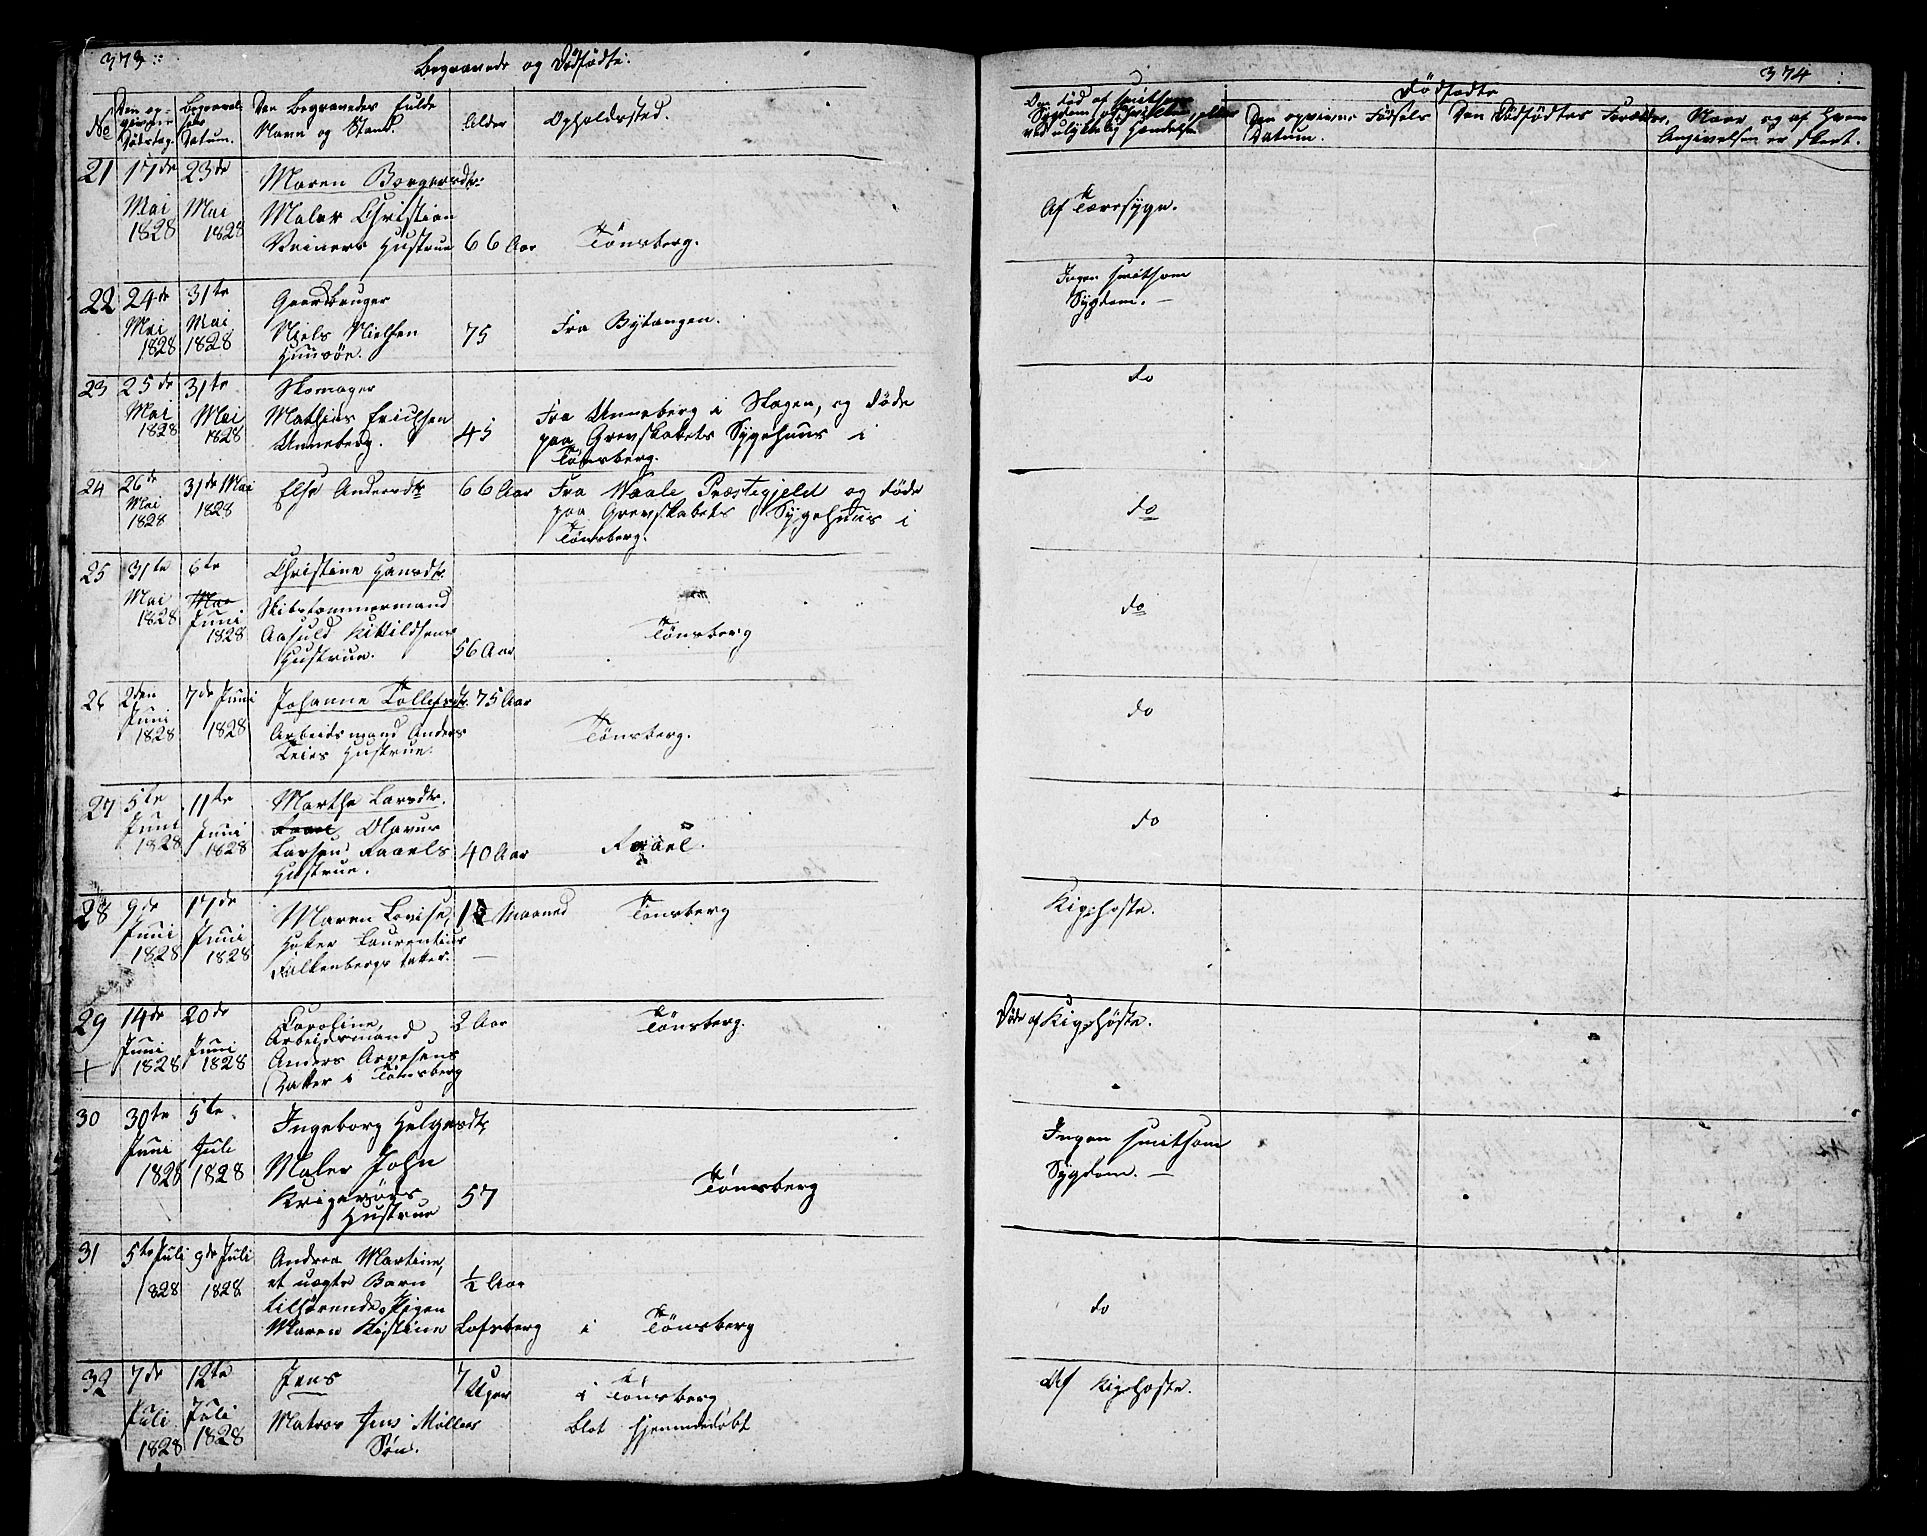 373
Begravede og Dödfödte.
No
Den opgivne Dødsdag.
Begravelses Datum.
Den Begravedes fulde Navn og Stand.
Alder
Opholdssted.
21 17de Mai 1828 23de Mai 1828
Maren Borgersdtr:
Maler Christian
Reiners Hustrue 66 Aar Tönsberg.
22 24de Mai 1828 31te Mai 1828
Gaardbruger
Niels Nielsen 75 Fra Bytangen.
23 25de Mai 1828 31te Mai 1828
Skomager
Mathias Erichsen
Unneberg. 45
Fra Unneberg i Slagen, og døde
paa Grevskabets Sygehuus i
Tönsberg.
24 26de Mai 1828 31de Mai 1828
Else Andersdtr 66 Aar
Fra Waale Præstegjeld og døde
paa Grevskabets Sygehuus i
Tönsberg.
25 31te Mai 1828 6te Mai Juni 1828
Christine Hansdtr.
Skibstømmermand
Aasuld Kittildsens
Hustrue. 56 Aar Tönsberg
26 2den Juni 1828 7de Juni 1828
Johanne Tollefsdtr. 75 Aar
Arbeidsmand Anders
Teies Hustrue. Tönsberg.
27 5te Juni 1828 11te Juni 1828
Marthe Larsdtr.
Olavus
Larsens Raaels
Hustrue. 40 Aar Raael.
28 9de Juni 1828 17de Juni 1828
Maren Lovise, Maaned Tönsberg
Høker Laurentius
Falkenbergs Datter.
29 14de Juni 1828 20de Juni 1828
+
Caroline, 2 Aar Tönsberg.
Arbeidsmand
Anders Arvesens
Datter i Tönsberg
30 30te Juni 1828 5te Juli 1828
Ingeborg Helgesdtr.
Maler John
Hustrue 57 Tönsberg
31 5te Juli 1828 9de Juli 1828
Andrea Martine,
et uægte Barn 1/2 Aar
tilhørende Pigen
Maren Kistine Lofsberg i Tönsberg
32 7de Juli 1828 12te Juli 1828
Jens 7 Uger i Tönsberg
Matros Jens Møllers blot hjemmedøbt
Søn.
374
Dödfödte
Om død af smitsom
Sygdom, eller
ved ulykkelig Hændelse
Den opgivne Fødsels
Datum.
Den Dödfödtes Forældre.
Naar og af hvem
Angivelsen er skeet.
Af Tæresyge.
Ingen smitsom
Sygdom. —
do
do
do
do
do
Kighoste.
Døde af Kighoste.
Ingen smitsom
Sygdom. —
do
Af Kighoste.